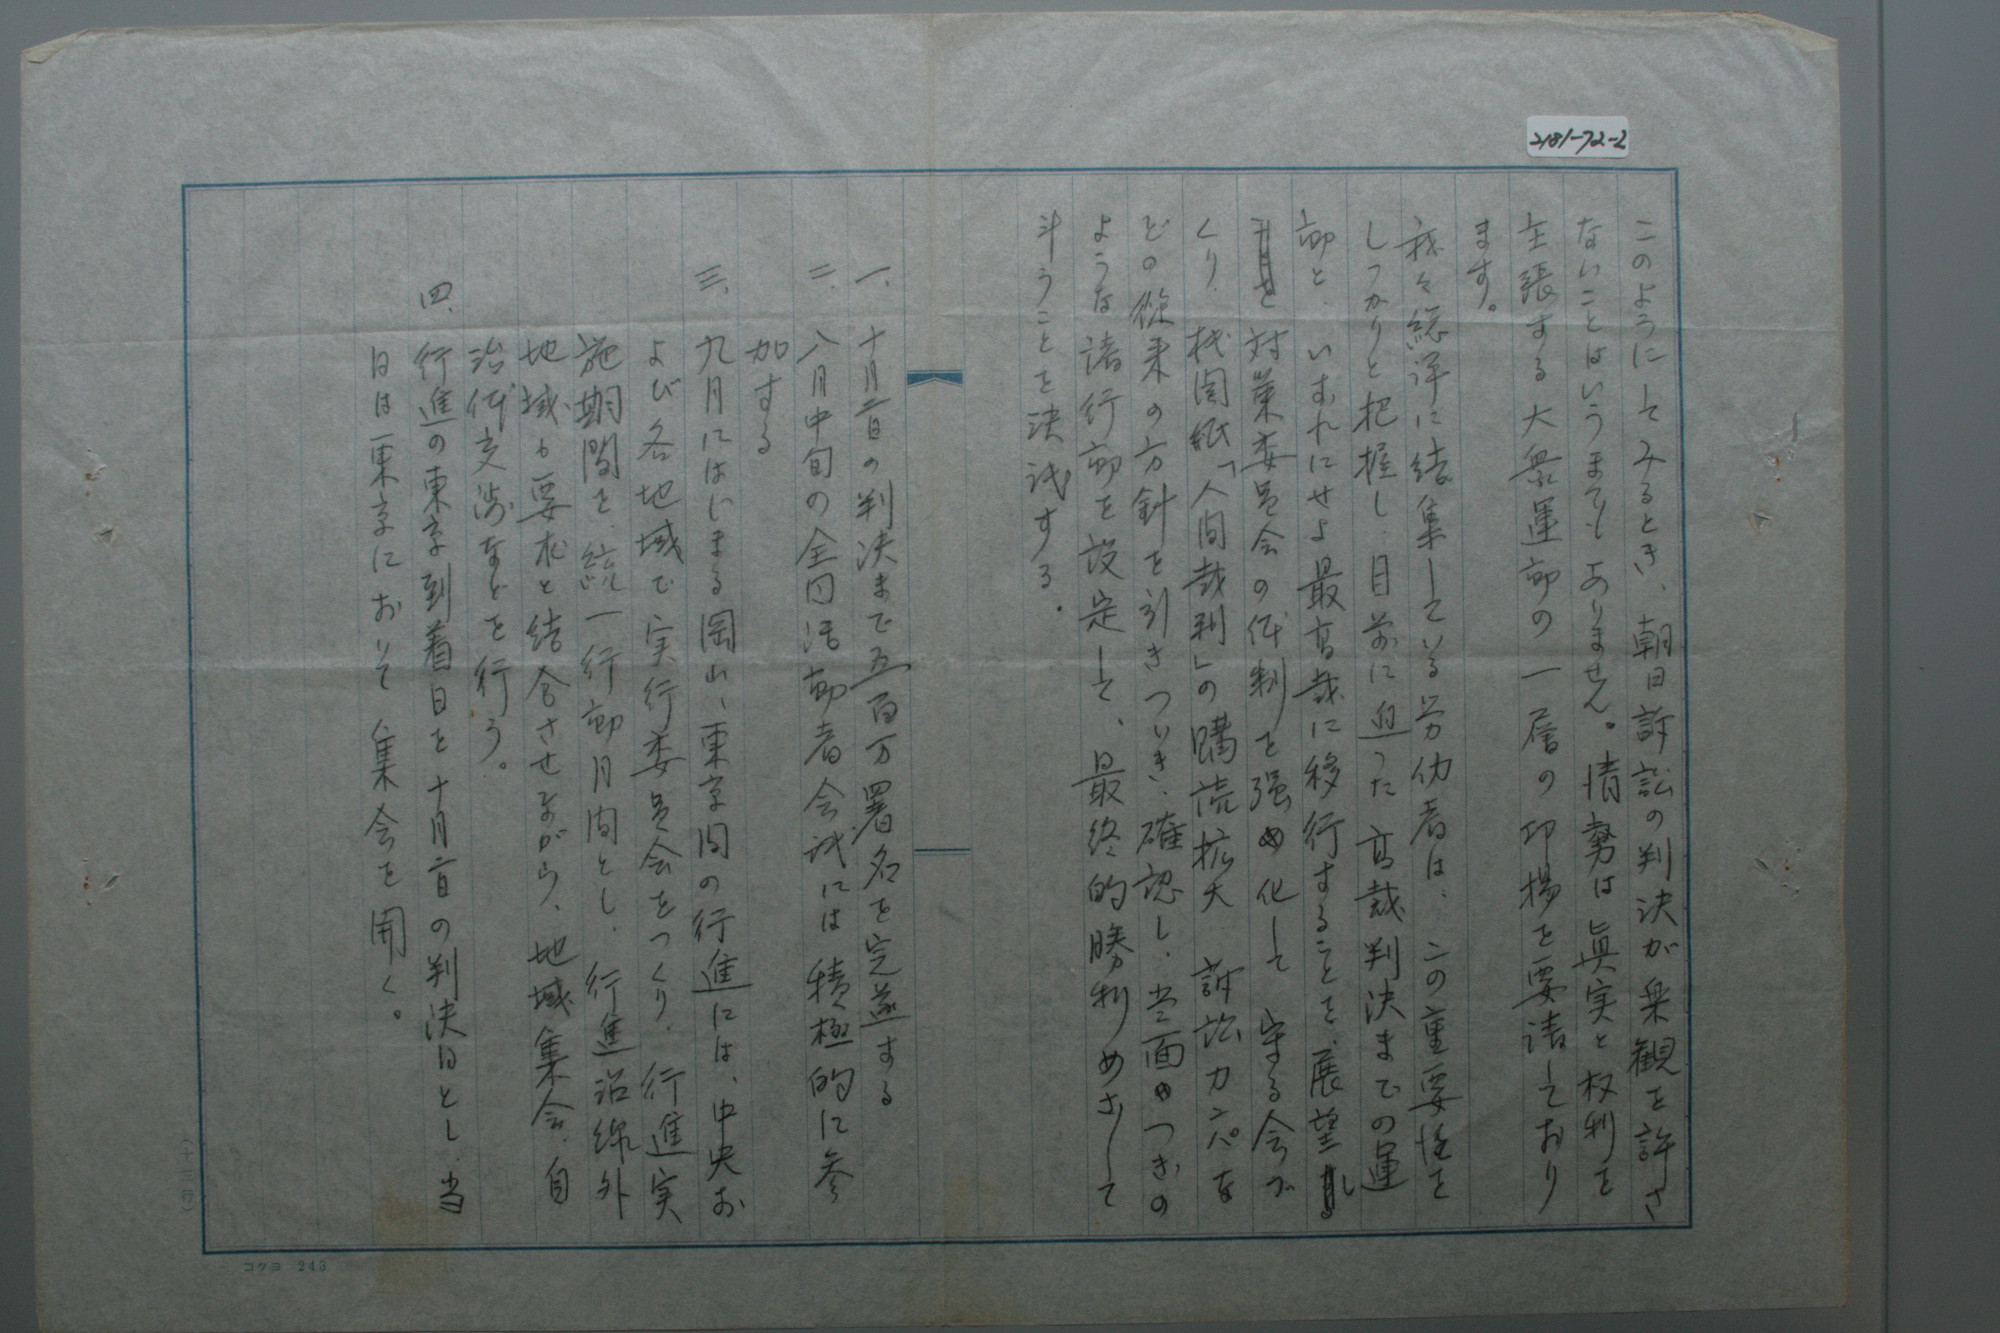 2181-72-2
このようにしてみるとき、朝日訴訟の判決が楽観を許さ
ないことはいうまでもありません。情勢は真実と权利を
主張する大衆運动の一層の昂揚を要請しており
ます。
我々総評に結集している労仂者は、この重要性を
しっかりと把握し、目前に迫った高裁判決までの運
动と、いずれにせよ最高裁に移行することを、展望し
対策委員会の体制を強め化して 守る会づ
くり、机関紙「人間裁判」の購読拡大 訴訟カンパな
どの従来の方針を引きつづき、確認し、当面のつぎの
ような諸行动を設定して、最終的勝利めざして
斗うことを決議する。
一、十月二日の判決まで五百万署名を完遂する
二、八月中旬の全国活动者会議には積極的に参
加する
三、九月にはじまる岡山、東京間の行進には、中央お
よび各地域で実行委員会をつくり、行進実
施期間を、統一行动月間とし、行進沿線外
地域も要求と結合させながら、地域集会、自
治体交渉などを行う。
四、行進の東京到着日を十月一日の判決日とし、当
日は東京において集会を開く。
(十三行)
コクヨ 243